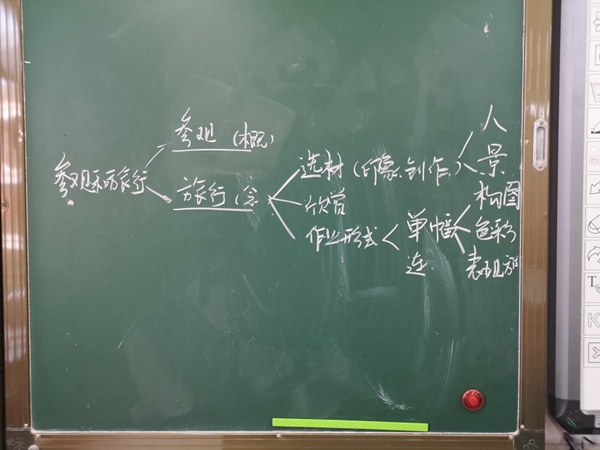 参观和旅行
参观（概）
旅行（念
选材（印象.创作.）
人
景
欣赏
作业形式
单幅
连.
构图
色彩
表现方法
T
K